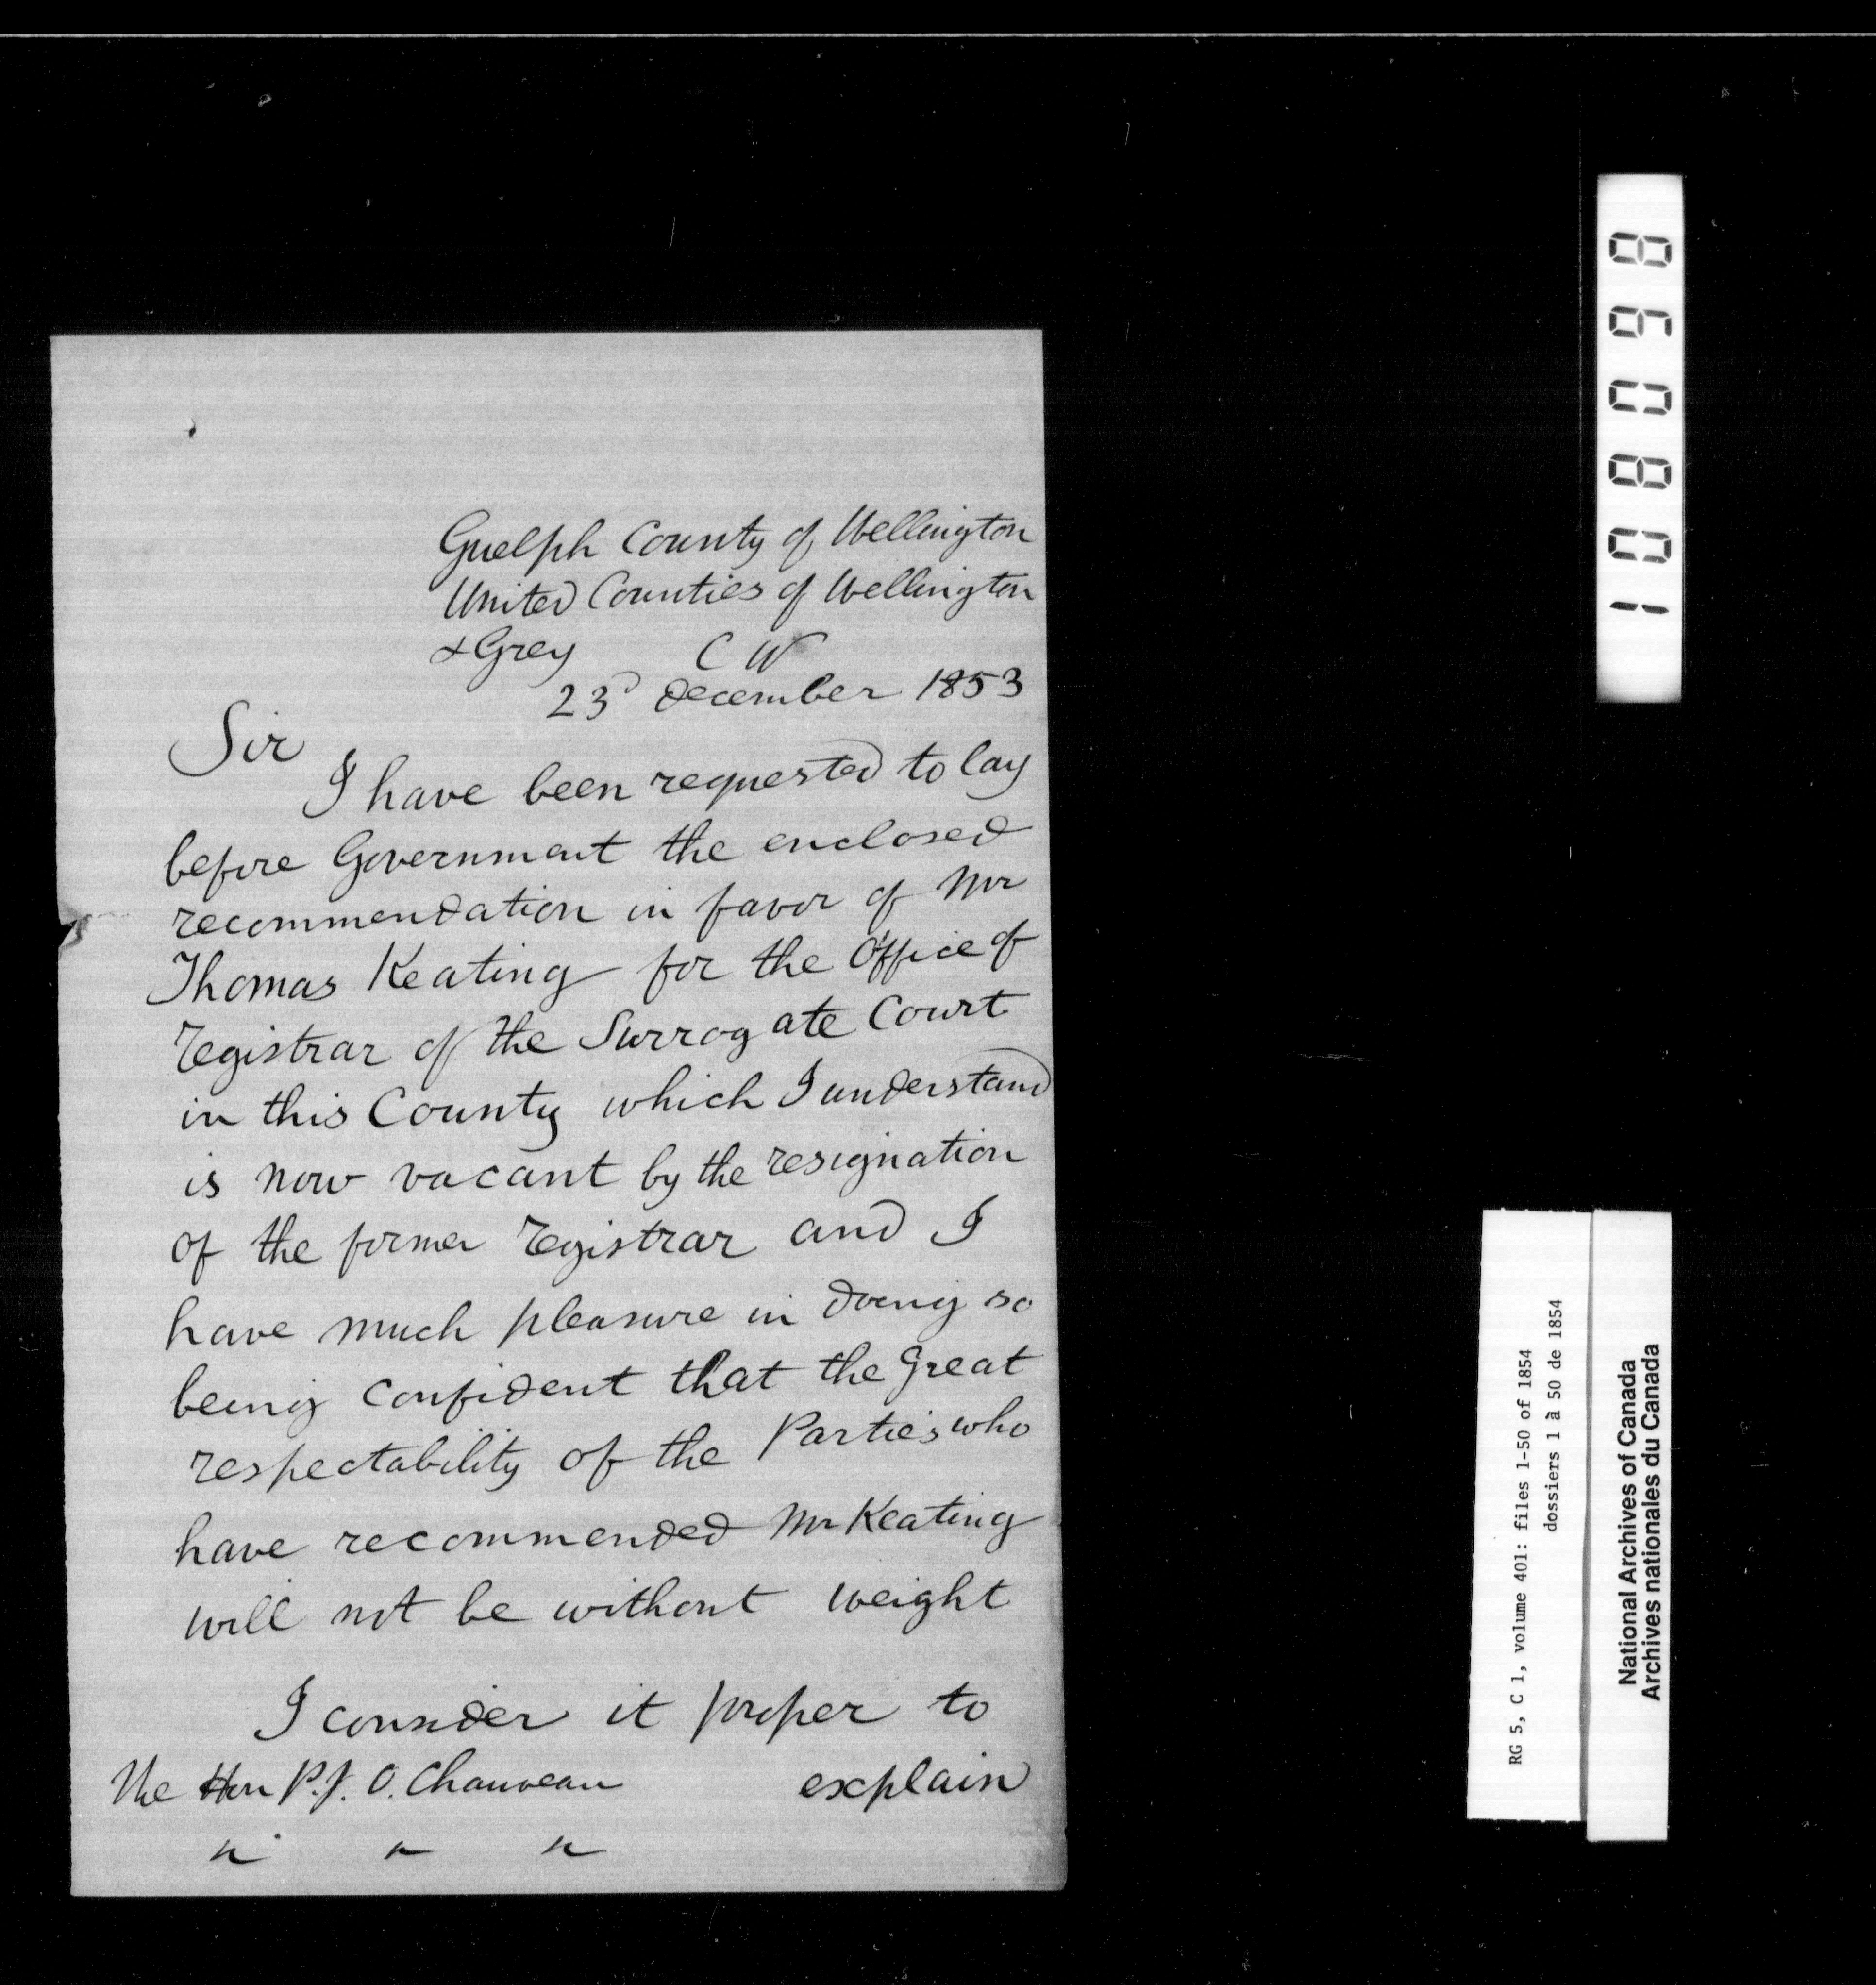 Guelph County of Wellington
United Counties of Wellington
& Grey C W
23d december 1853
Sir
I have been requested to lay
before Government the enclosed
recommendation in favor of Mr
Thomas Keating for the Office of
Registrar of the Surrogate Court
in this County which I understand
is now vacant by the resignation
of the former Registrar and I
have much pleasure in doing so
being confident that the great
respectability of the Parties who
have recommended Mr Keating
will not be without weight
I consider it proper to
The Hon P. J. O. Chauveau explain
" " "
108098
RG 5, C 1, volume 401: files 1-50 of 1854
dossiers 1 à 50 de 1854
National Archives of Canada
Archives nationales du Canada